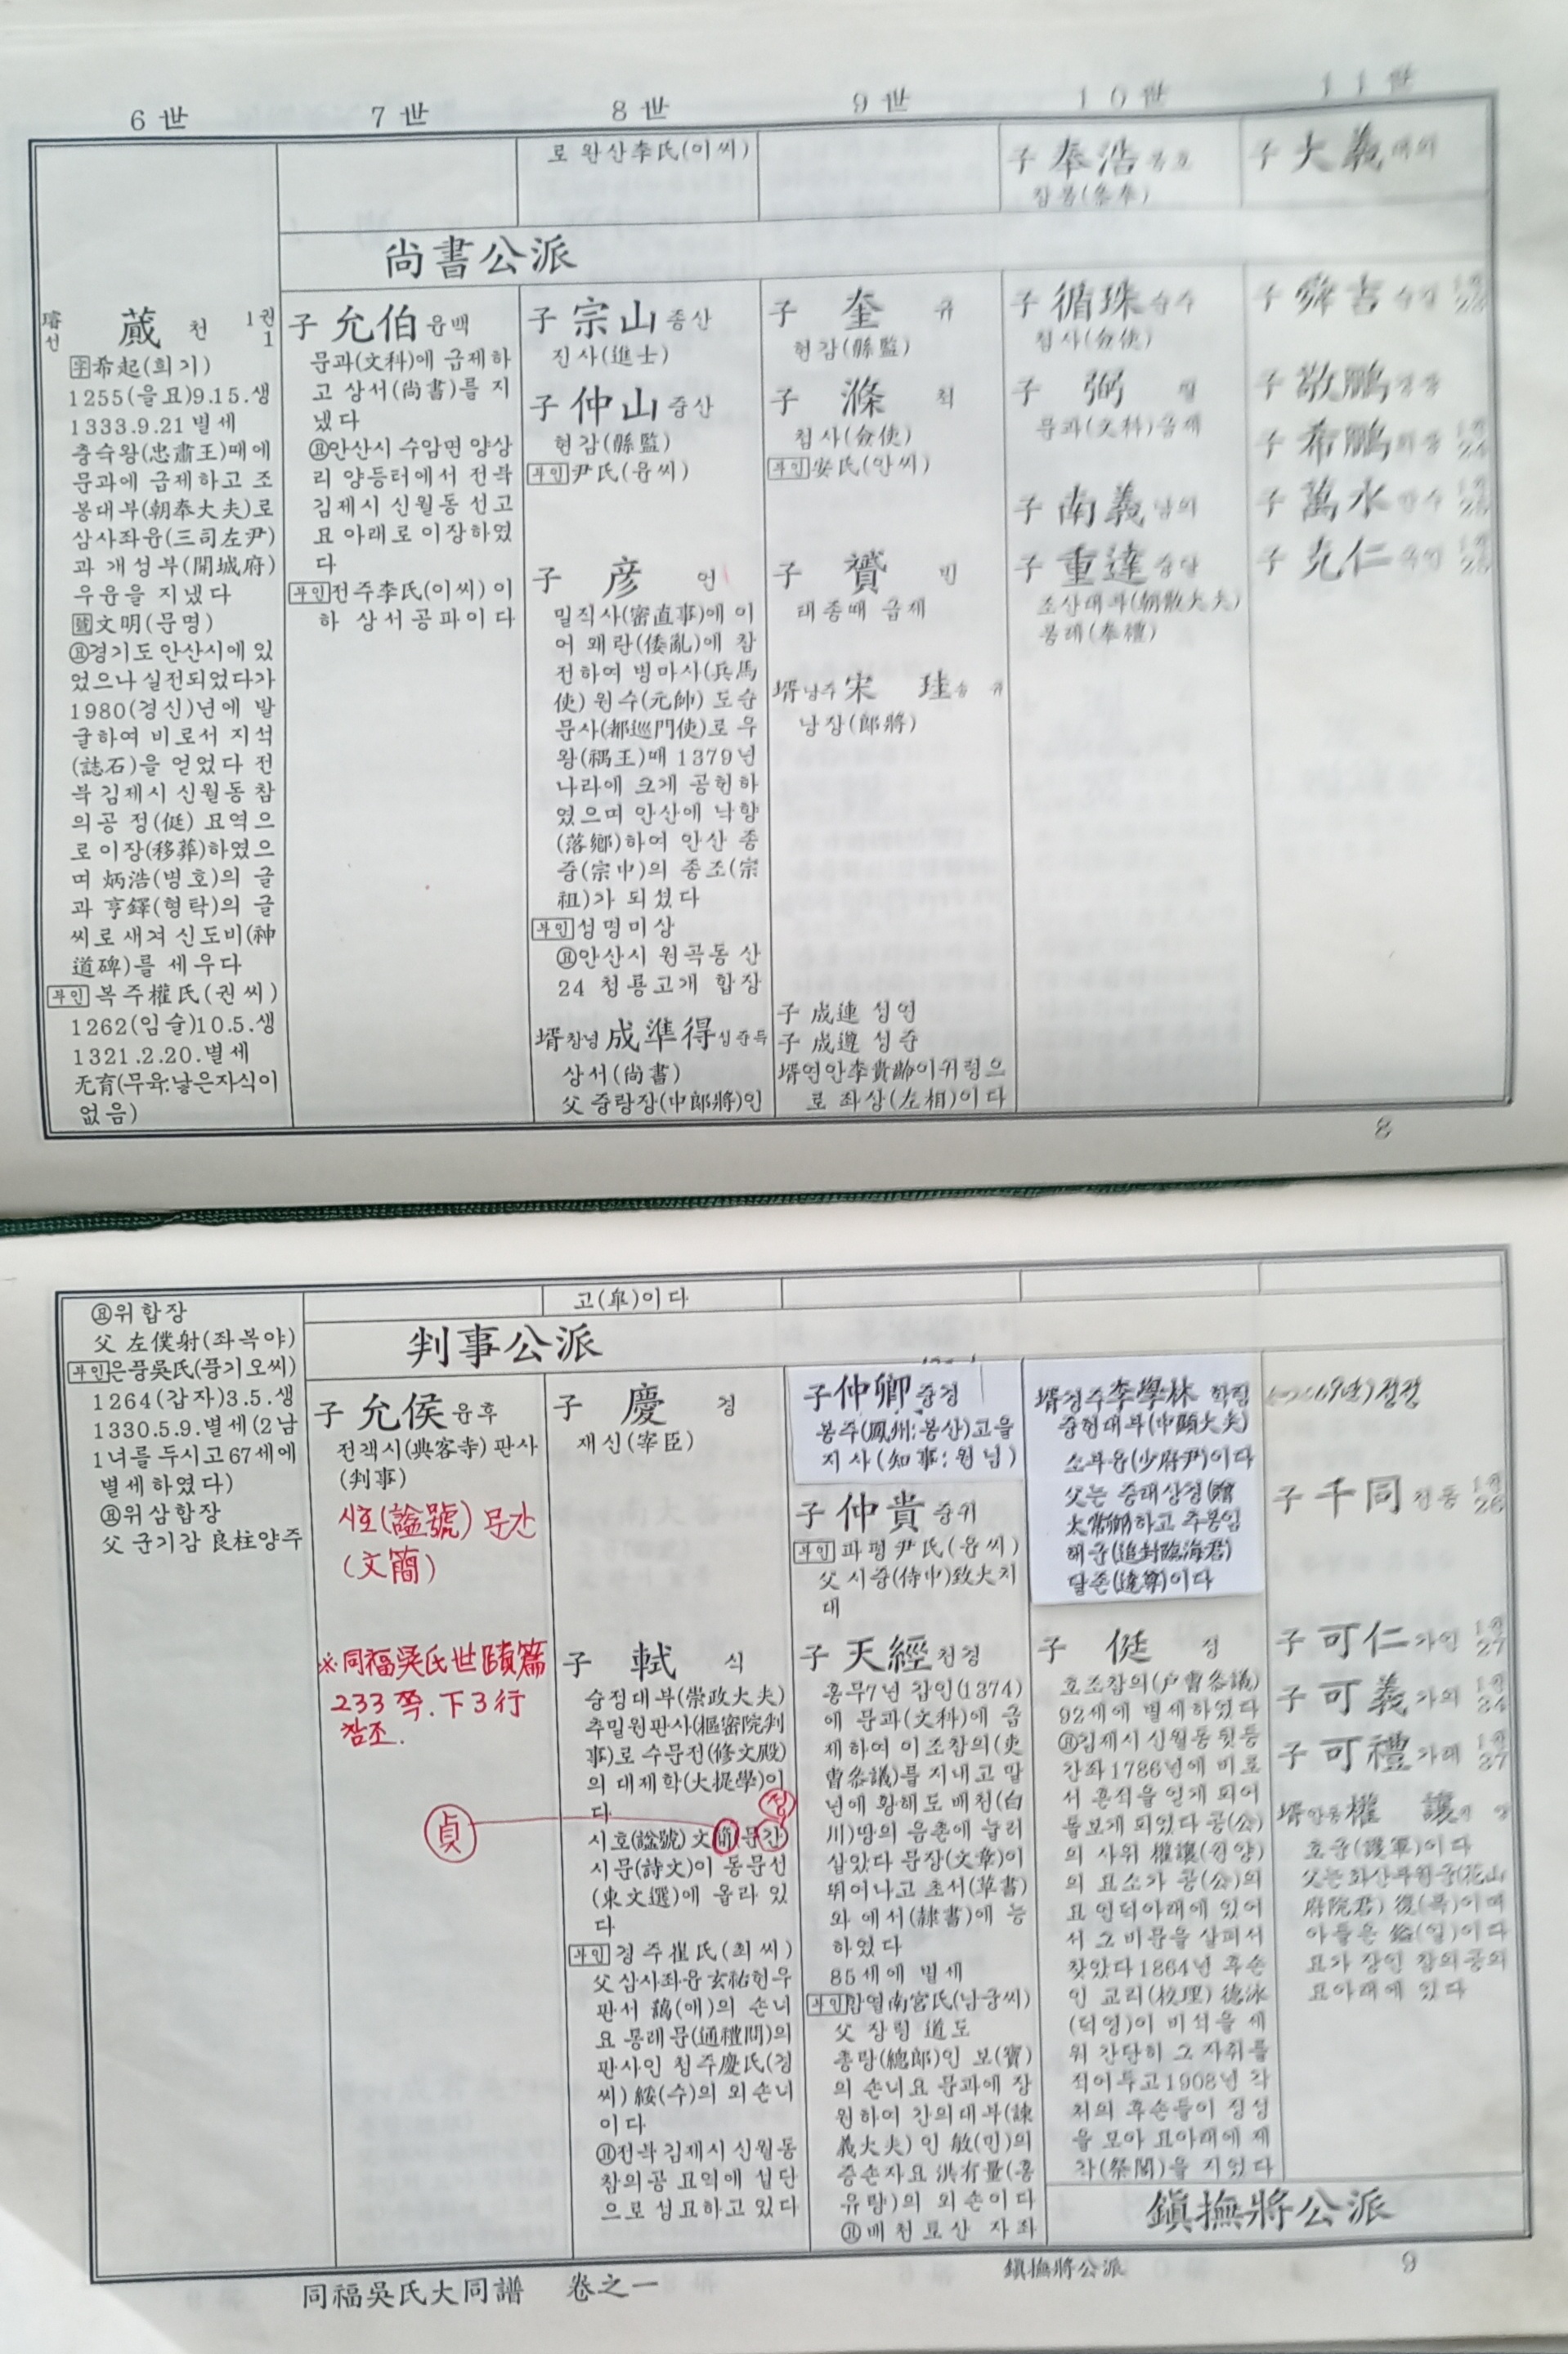 6世
7世
8世
9世
10世
11世
로 완산李氏(이씨)
子 奉浩 봉호
참봉(參奉)
子 大義 대의
尚書公派
璿 선
蕆 천 1권 1
字希起(희기)
1255(을묘)9.15.생
1333.9.21 별세
충숙왕(忠肅王)때에
문과에 급제하고 조
봉대부(朝奉大夫)로
삼사좌윤(三司左尹)
과 개성부(開城府)
우윤을 지냈다
號文明(문명)
墓경기도 안산시에 있
었으나 실전되었다가
1980(경신)년에 발
굴하여 비로서 지석
(誌石)을 얻었다 전
북 김제시 신월동 참
의공 정(侹) 묘역으
로 이장(移葬)하였으
며 炳浩(병호)의 글
과 亨鐸(형탁)의 글
씨로 새겨 신도비(神
道碑)를 세우다
부인 복주權氏(권씨)
1262(임술)10.5.생
1321.2.20.별세
无育(무육:낳은자식이
없음)
子 允伯 윤백
문과(文科)에 급제하
고 상서(尚書)를 지
냈다
墓안산시 수암면 양상
리 양등터에서 전북
김제시 신월동 선고
묘 아래로 이장하였
다
부인전주李氏(이씨) 이
하 상서공파이다
子 宗山 종산
진사(進士)
子 仲山 중산
현감(縣監)
부인尹氏(윤씨)
子 彦 언
밀직사(密直事)에 이
어 왜란(倭亂)에 참
전하여 병마사(兵馬
使) 원수(元帥) 도순
문사(都巡門使)로 우
왕(禑王)때 1379년
나라에 크게 공헌하
였으며 안산에 낙향
(落鄕)하여 안산 종
중(宗中)의 종조(宗
祖)가 되셨다
부인성명미상
墓안산시 원곡동 산
24 청룡고개 합장
壻창녕 成準得 성준득
상서(尚書)
父 중랑장(中郎將)인
子 奎 규
현감(縣監)
子 滌 척
첨사(僉使)
부인安氏(안씨)
子 贇 빈
태종때 급제
壻남주 宋 珪 송 규
낭장(郎將)
子 成連 성연
子 成遵 성준
壻연안李貴齡이귀령으
로 좌상(左相)이다
子 循珠 순주
첨사(僉使)
子 弼 필
문과(文科)급제
子 南義 남의
子 重達 중달
조산대부(朝散大夫)
봉례(奉禮)
子 舜吉 순길
子 敬鵬 경붕
子 希鵬 희붕
子 萬水 만수
子 克仁 극인
8
墓위합장
父 左僕射(좌복야)
부인은풍吳氏(풍기오씨)
1264(갑자)3.5.생
1330.5.9.별세(2남
1녀를 두시고 67세에
별세하였다)
墓위삼합장
父 군기감 良柱양주
고(皐)이다
判事公派
子 允侯 윤후
전객시(典客寺) 판사
(判事)
시호(諡號) 문간
(文簡)
※同福吳氏世蹟篇
233쪽.下3行
참조.
貞
子 慶 경
재신(宰臣)
子 軾 식
숭정대부(崇政大夫)
추밀원판사(樞密院判
事)로 수문전(修文殿)
의 대제학(大提學)이
다
정
시호(諡號) 文簡(문간)
시문(詩文)이 동문선
(東文選)에 올라 있
다
부인 경주崔氏(최씨)
父 삼사좌윤 玄祐현우
판서 藹(애)의 손녀
요 통례문(通禮門)의
판사인 청주慶氏(경
씨) 綏(수)의 외손녀
이다
墓전북 김제시 신월동
참의공 묘역에 설단
으로 성묘하고 있다
子仲卿 중경
봉주(鳳州:봉산)고을
지사(知事:원님)
子 仲貴 중귀
부인 파평尹氏(윤씨)
父 시중(侍中)致大치
대
子 天經 천경
홍무7년 갑인(1374)
에 문과(文科)에 급
제하여 이조참의(吏
曹參議)를 지내고 말
년에 황해도 배천(白
川)땅의 읍촌에 눌러
살았다 문장(文章)이
뛰어나고 초서(草書)
와 예서(隷書)에 능
하였다
85세에 별세
부인함열南宮氏(남궁씨)
父 장령 道도
총랑(總郎)인 보(寶)
의 손녀요 문과에 장
원하여 간의대부(諫
義大夫)인 敏(민)의
증손자요 洪有量(홍
유량)의 외손이다
墓배천 토산 자좌
壻경주李學林 학림
중현대부(中顯大夫)
소부윤(少府尹)이다
父는 증태상경(贈
太常卿)하고 추봉임
해군(追封臨海君)
달존(達尊)이다
子 侹 정
호조참의(戶曹參議)
92세에 별세하였다
墓김제시 신월동 뒷등
간좌 1786년에 비로
서 흔적을 얻게 되어
돌보게 되었다 공(公)
의 사위 權讓(권양)
의 묘소가 공(公)의
묘 언덕아래에 있어
서 그 비문을 살펴서
찾았다 1864년 후손
인 교리(校理) 德泳
(덕영)이 비석을 세
워 간단히 그 자취를
적어두고 1908년 각
처의 후손들이 정성
을 모아 묘아래에 제
각(祭閣)을 지었다
子 千同 천동 1권 26
子 可仁 가인 1권 27
子 可義 가의 1권 34
子 可禮 가례 1권 37
壻안동權 讓권 양
호군(護軍)이다
父는 화산부원군(花山
府院君) 復(복)이며
아들은 鎰(일)이다
묘가 장인 참의공의
묘아래에 있다
鎭撫將公派
鎭撫將公派
9
同福吳氏大同譜 卷之一